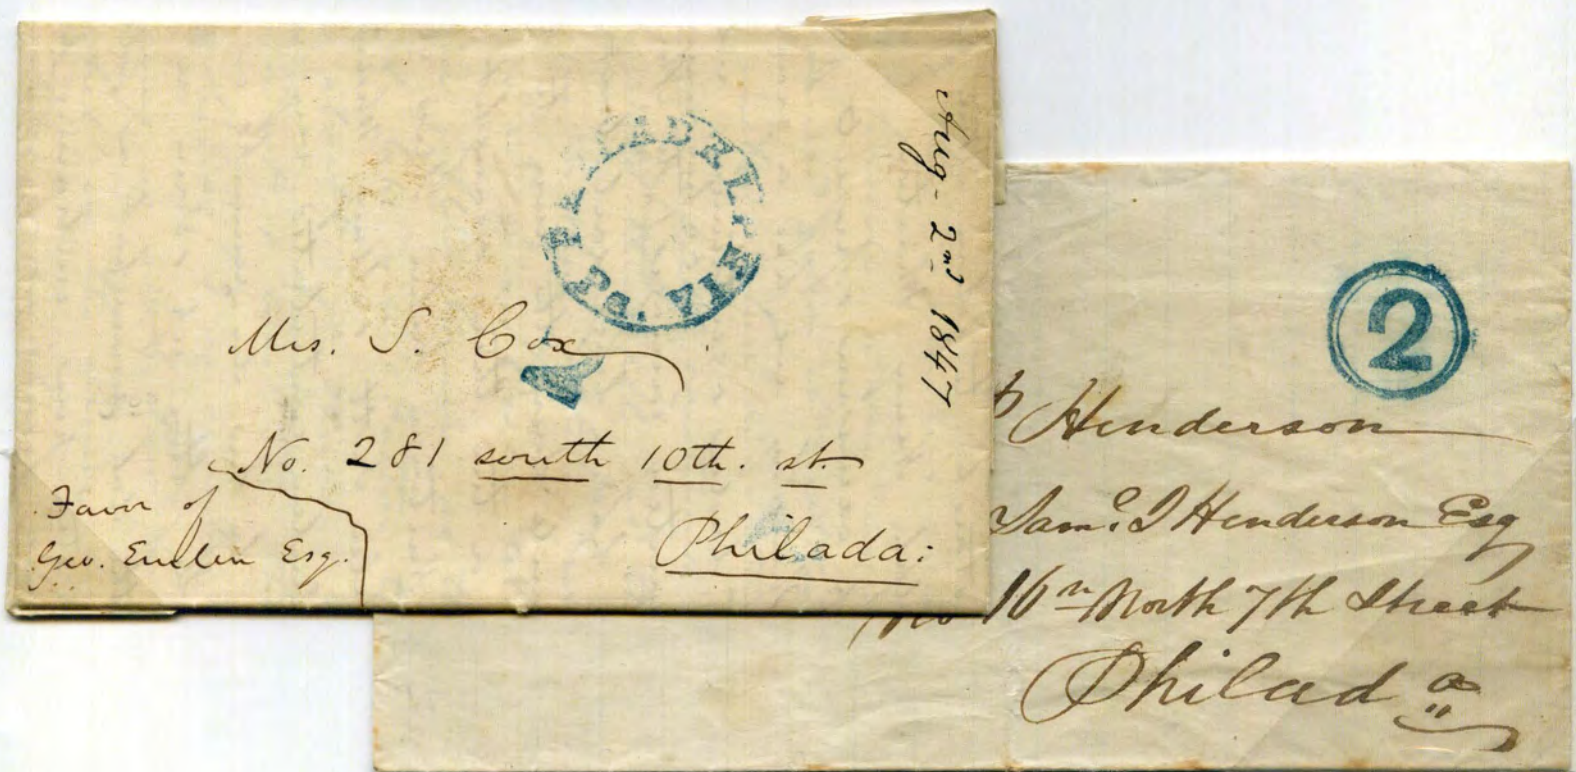 PHILADELPHIA Pa.
Aug - 2nd 1847
Mrs. S. Cox
No. 281 south 10th. st.
Philada:
Favor of
Geo. Emlen Esq.
2
Henderson
Saml. J Henderson Esq
No 16 North 7th Street
Philada